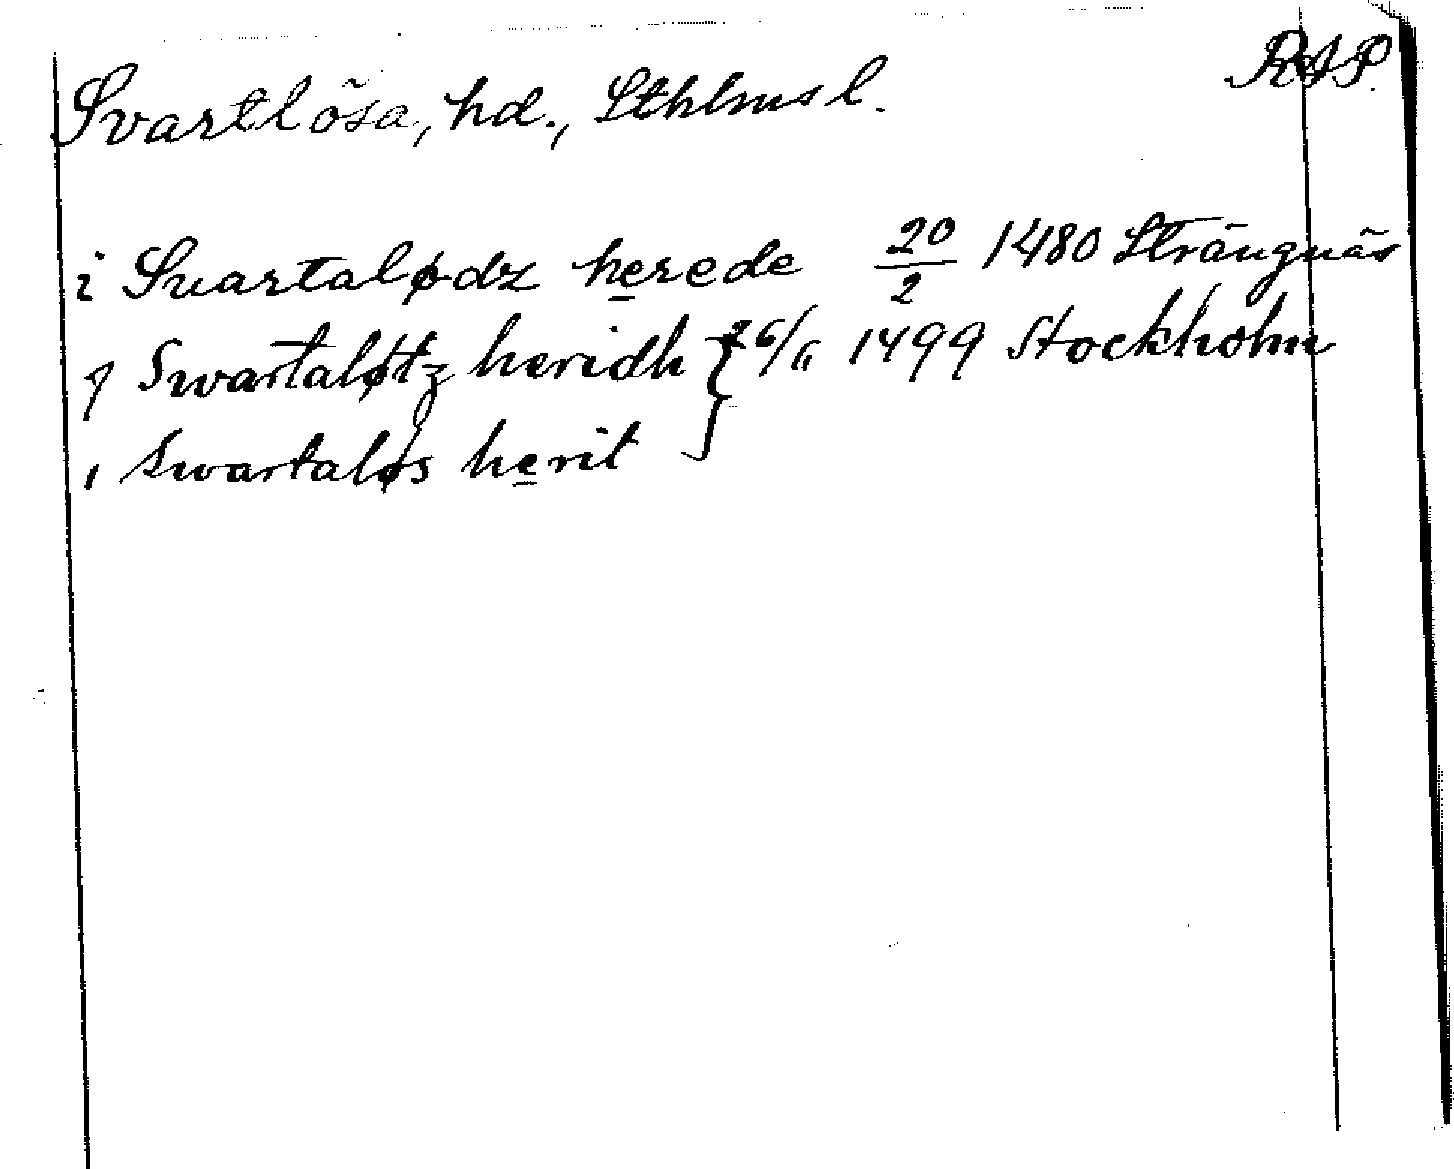 Svartlösa, hd., Sthlms l. RAP.
i Suartalødz herede 20/2 1480 Strängnäs
j Swartaløtz heridh } 26/11 1499 Stockholm
i Swartaløs herit